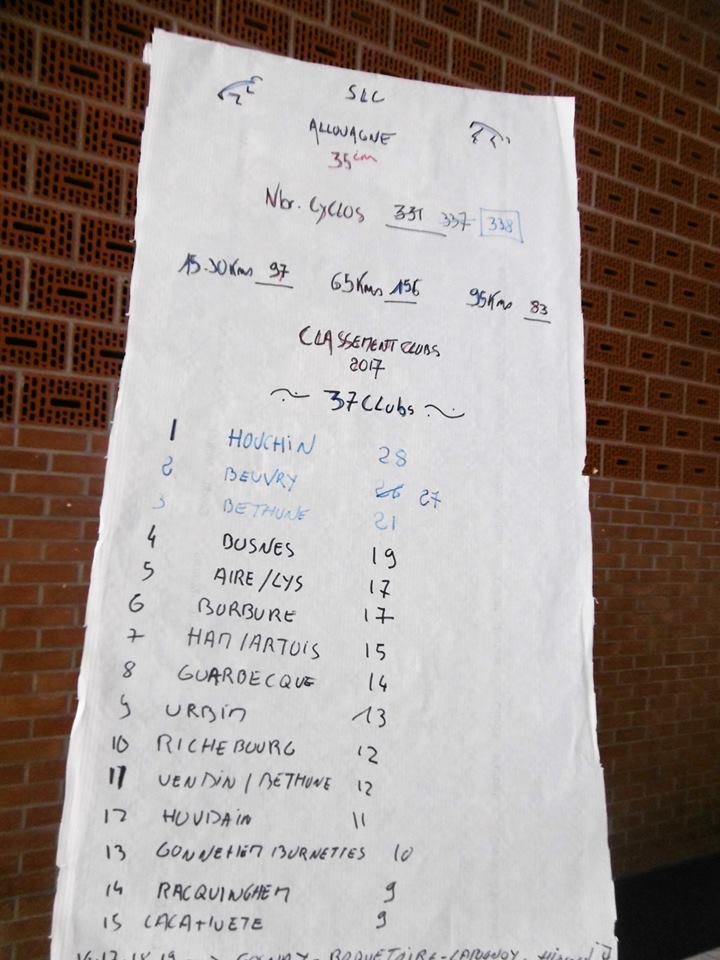 SLC
ALLOUAGNE
35 cm
Nbr. CYCLOS 331 337 338
15.30Kms 97 65Kms 156 95Kms 83
CLASSEMENT CLUBS
2017
~ 37 Clubs ~
1 HOUCHIN 28
2 BEUVRY 26 27
3 BETHUNE 21
4 BUSNES 19
5 AIRE/LYS 17
6 BURBURE 17
7 HAM/ARTOIS 15
8 GUARBECQUE 14
9 URBIM 13
10 RICHEBOURG 12
11 VENDIN/BETHUNE 12
12 HOUDAIN 11
13 GONNEHEM BURNETTES 10
14 RACQUINGHEM 9
15 9
16.17.18.19